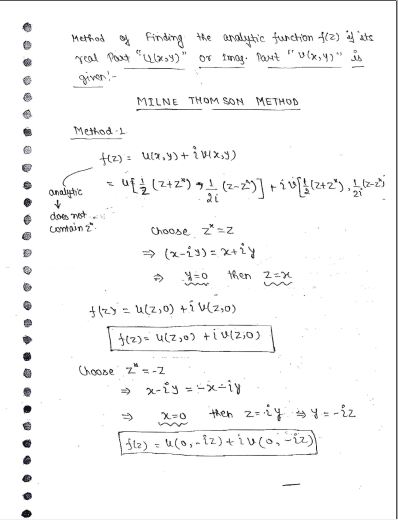 Method of Finding the analytic function f(z) if its
real Part "U(x,y)" or Imag. Part "V(x,y)" is
given:-
MILNE THOMSON METHOD
Method-1
f(z) = u(x,y) + i v(x,y)
= u[1/2 (z+z*), 1/2i (z-z*)] + i v[1/2 (z+z*), 1/2i (z-z*)
analytic
↓
does not
contain z*
choose z* = z
⇒ (x-iy) = x+iy
⇒ y=0 then z=x
f(z) = u(z,0) + i v(z,0)
f(z) = u(z,0) + i v(z,0)
Choose z* = -z
⇒ x-iy = -x-iy
⇒ x=0 then z=iy ⇒ y = -iz
f(z) = u(0,-iz) + i v(0,-iz)